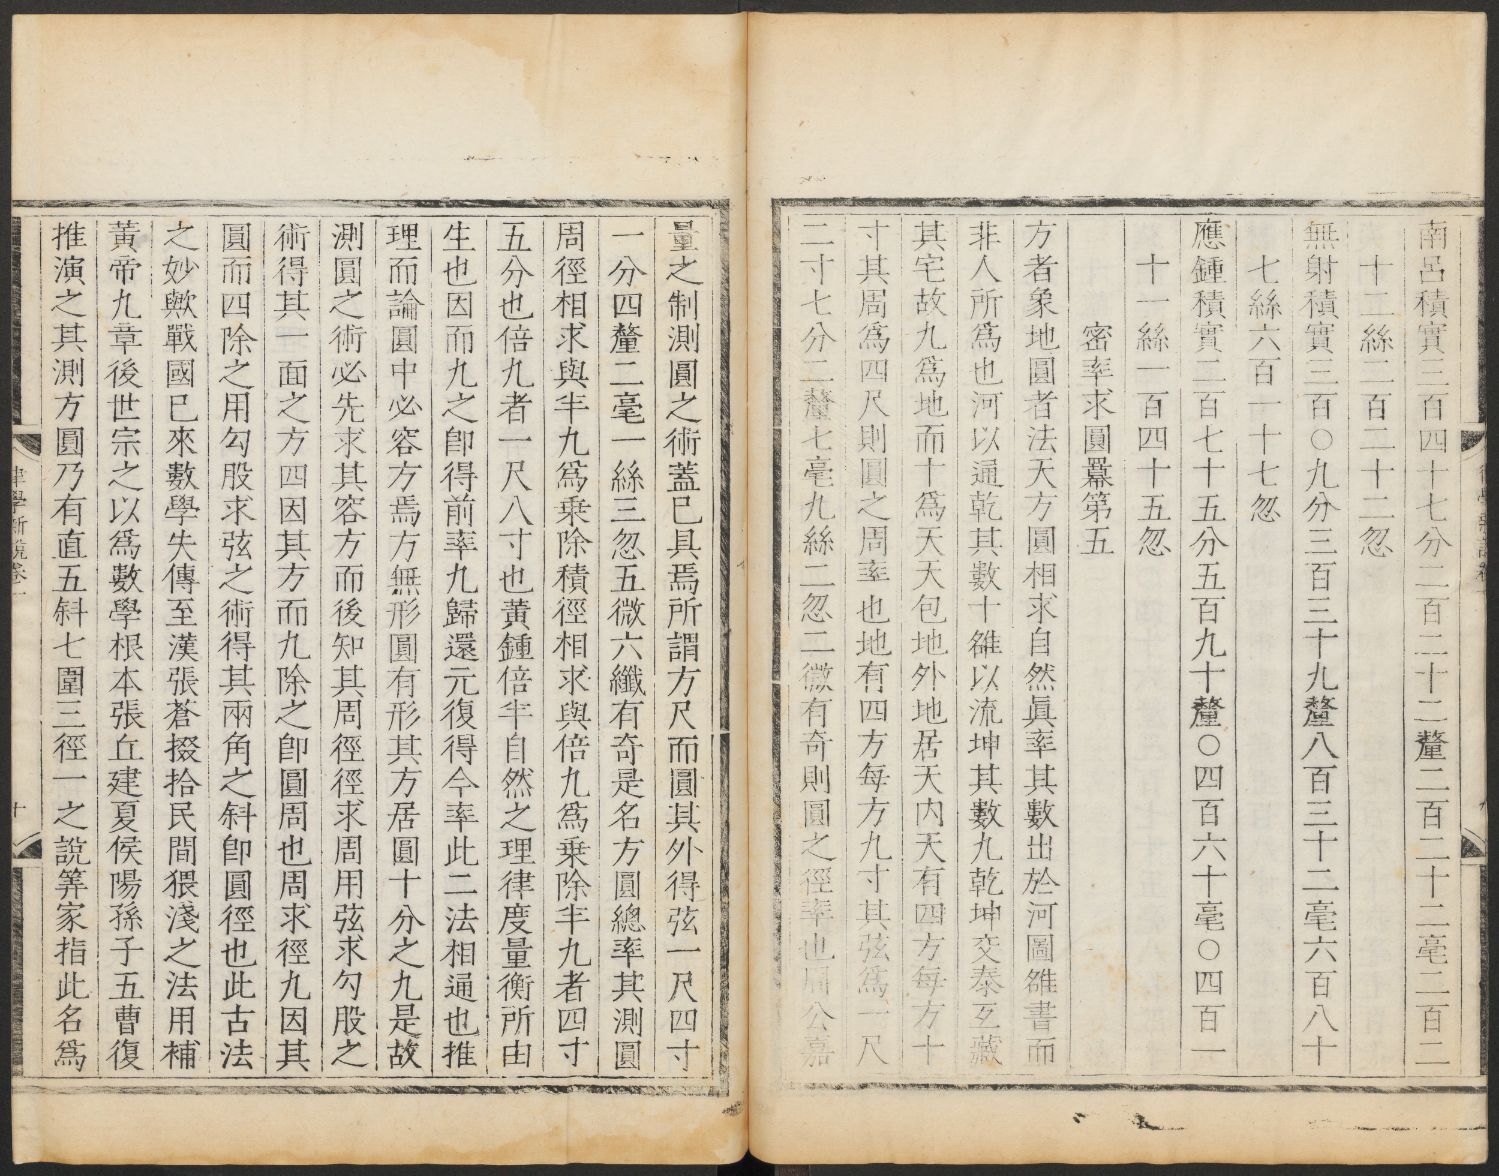 南呂積實三百四十七分二百二十二釐二百二十二毫二百二
十二絲二百二十二忽
無射積實三百〇九分三百三十九釐八百三十二毫六百八十
七絲六百一十七忽
應鍾積實二百七十五分五百九十釐〇四百六十毫〇四百一
十一絲一百四十五忽
密率求圓羃第五
方者象地圓者法天方圓相求自然眞率其數出於河圖雒書而
非人所爲也河以通乾其數十雒以流坤其數九乾坤交泰互藏
其宅故九爲地而十爲天天包地外地居天內天有四方每方十
寸其周爲四尺則圓之周率也地有四方每方九寸其弦爲一尺
二寸七分二釐七毫九絲二忽二微有奇則圓之徑率也周公嘉
量之制測圓之術蓋已具焉所謂方尺而圓其外得弦一尺四寸
一分四釐二毫一絲三忽五微六纖有奇是名方圓總率其測圓
周徑相求與半九爲乗除積徑相求與倍九爲乗除半九者四寸
五分也倍九者一尺八寸也黄鍾倍半自然之理律度量衡所由
生也因而九之卽得前率九歸還元復得今率此二法相通也推
理而論圓中必容方焉方無形圓有形其方居圓十分之九是故
測圓之術必先求其容方而後知其周徑徑求周用弦求勾股之
術得其一面之方四因其方而九除之卽圓周也周求徑九因其
圓而四除之用勾股求弦之術得其兩角之斜卽圓徑也此古法
之妙歟戰國已來數學失傳至漢張蒼掇拾民間猥淺之法用補
黄帝九章後世宗之以爲數學根本張丘建夏侯陽孫子五曹復
推演之其測方圓乃有直五斜七圍三徑一之說筭家指此名爲
律學新說卷一
十